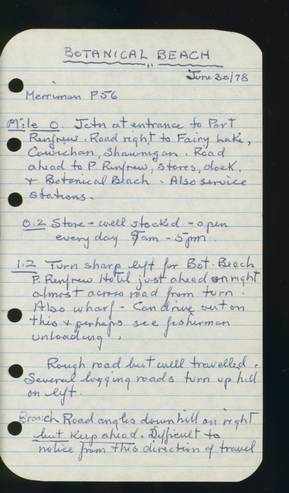 BOTANICAL BEACH
June 20/78
Merriman P56
Mile 0. Jctn at entrance to Port
Renfrew. Road right to Fairy Lake,
Cowichan, Shawnigan. Road
ahead to P. Renfrew, stores, dock,
& Botanical Beach. Also service
stations.
0.2 Store - well stocked - open
every day 9am - 5pm.
1.2 Turn sharp left for Bot. Beach
P. Renfrew Hotel just ahead on right
almost across road from turn.
Also wharf - Can drive out on
this & perhaps see fisherman
unloading.
Rough road but well travelled.
Several logging roads turn up hill
on left.
Branch Road angles downhill on right
but keep ahead. Difficult to
notice from this direction of travel